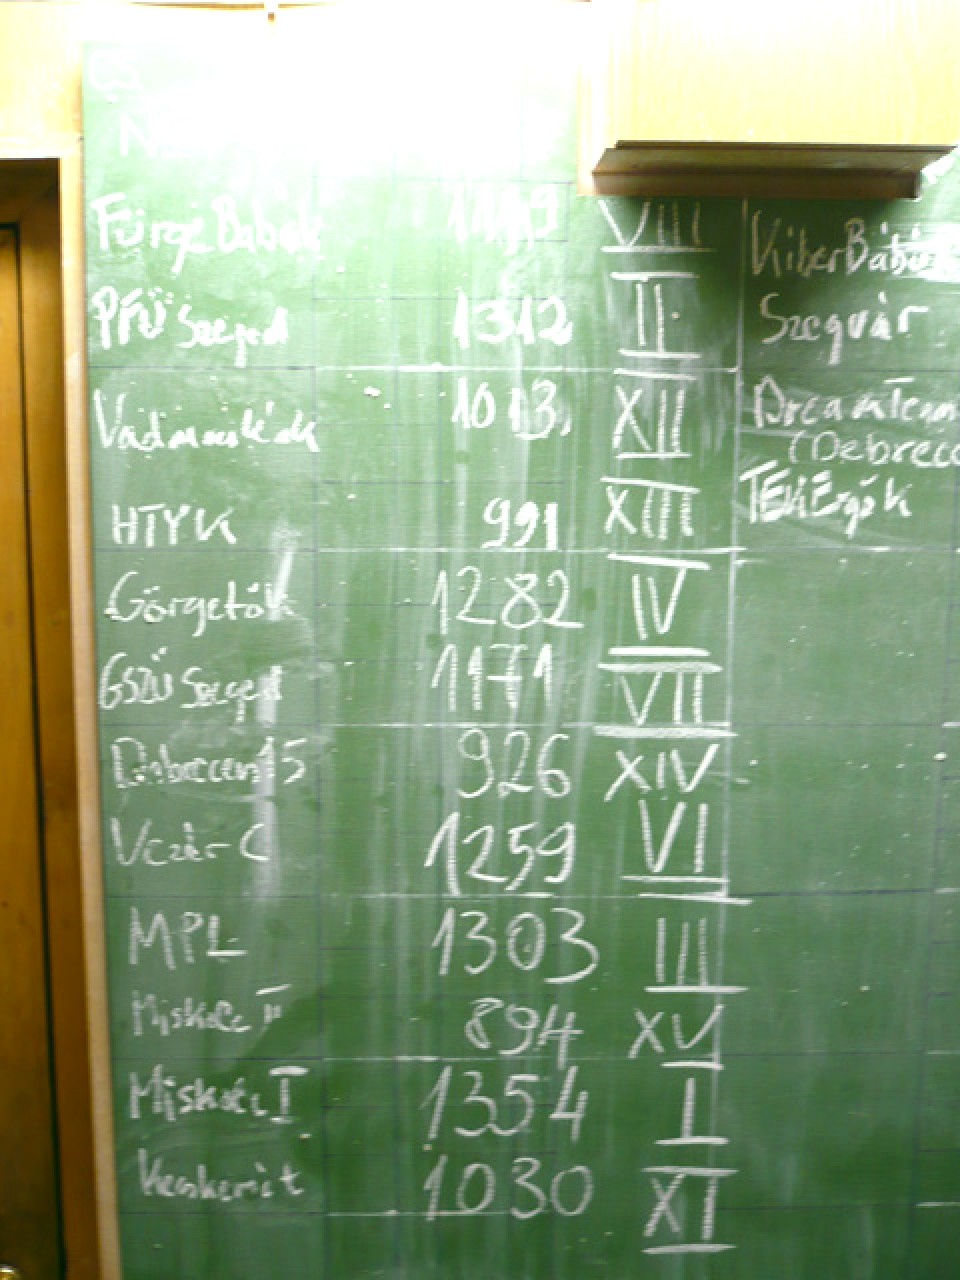 Fürge Babák VIII
PFÜ Szeged 1312 II
Vadmacskák 1013 XII
HTYK 991 XIII
Görgetők 1282 IV
GSZÜ Szeged 1171 VII
Debrecen 15 926 XIV
Vezér C 1259 VI
MPL 1303 III
Miskolc II 894 XV
Miskolc I 1354 I
1030 XI
KiberBábúk
Szegvár
TEKErgők